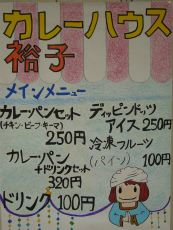 カレーハウス
裕子
メインメニュー
カレーパンセット
(チキン・ビーフ・キーマ)
250円
カレーパン
+ドリンクセット
320円
ドリンク 100円
ディッピンドッツ
アイス 250円
冷凍フルーツ
(パイン) 100円